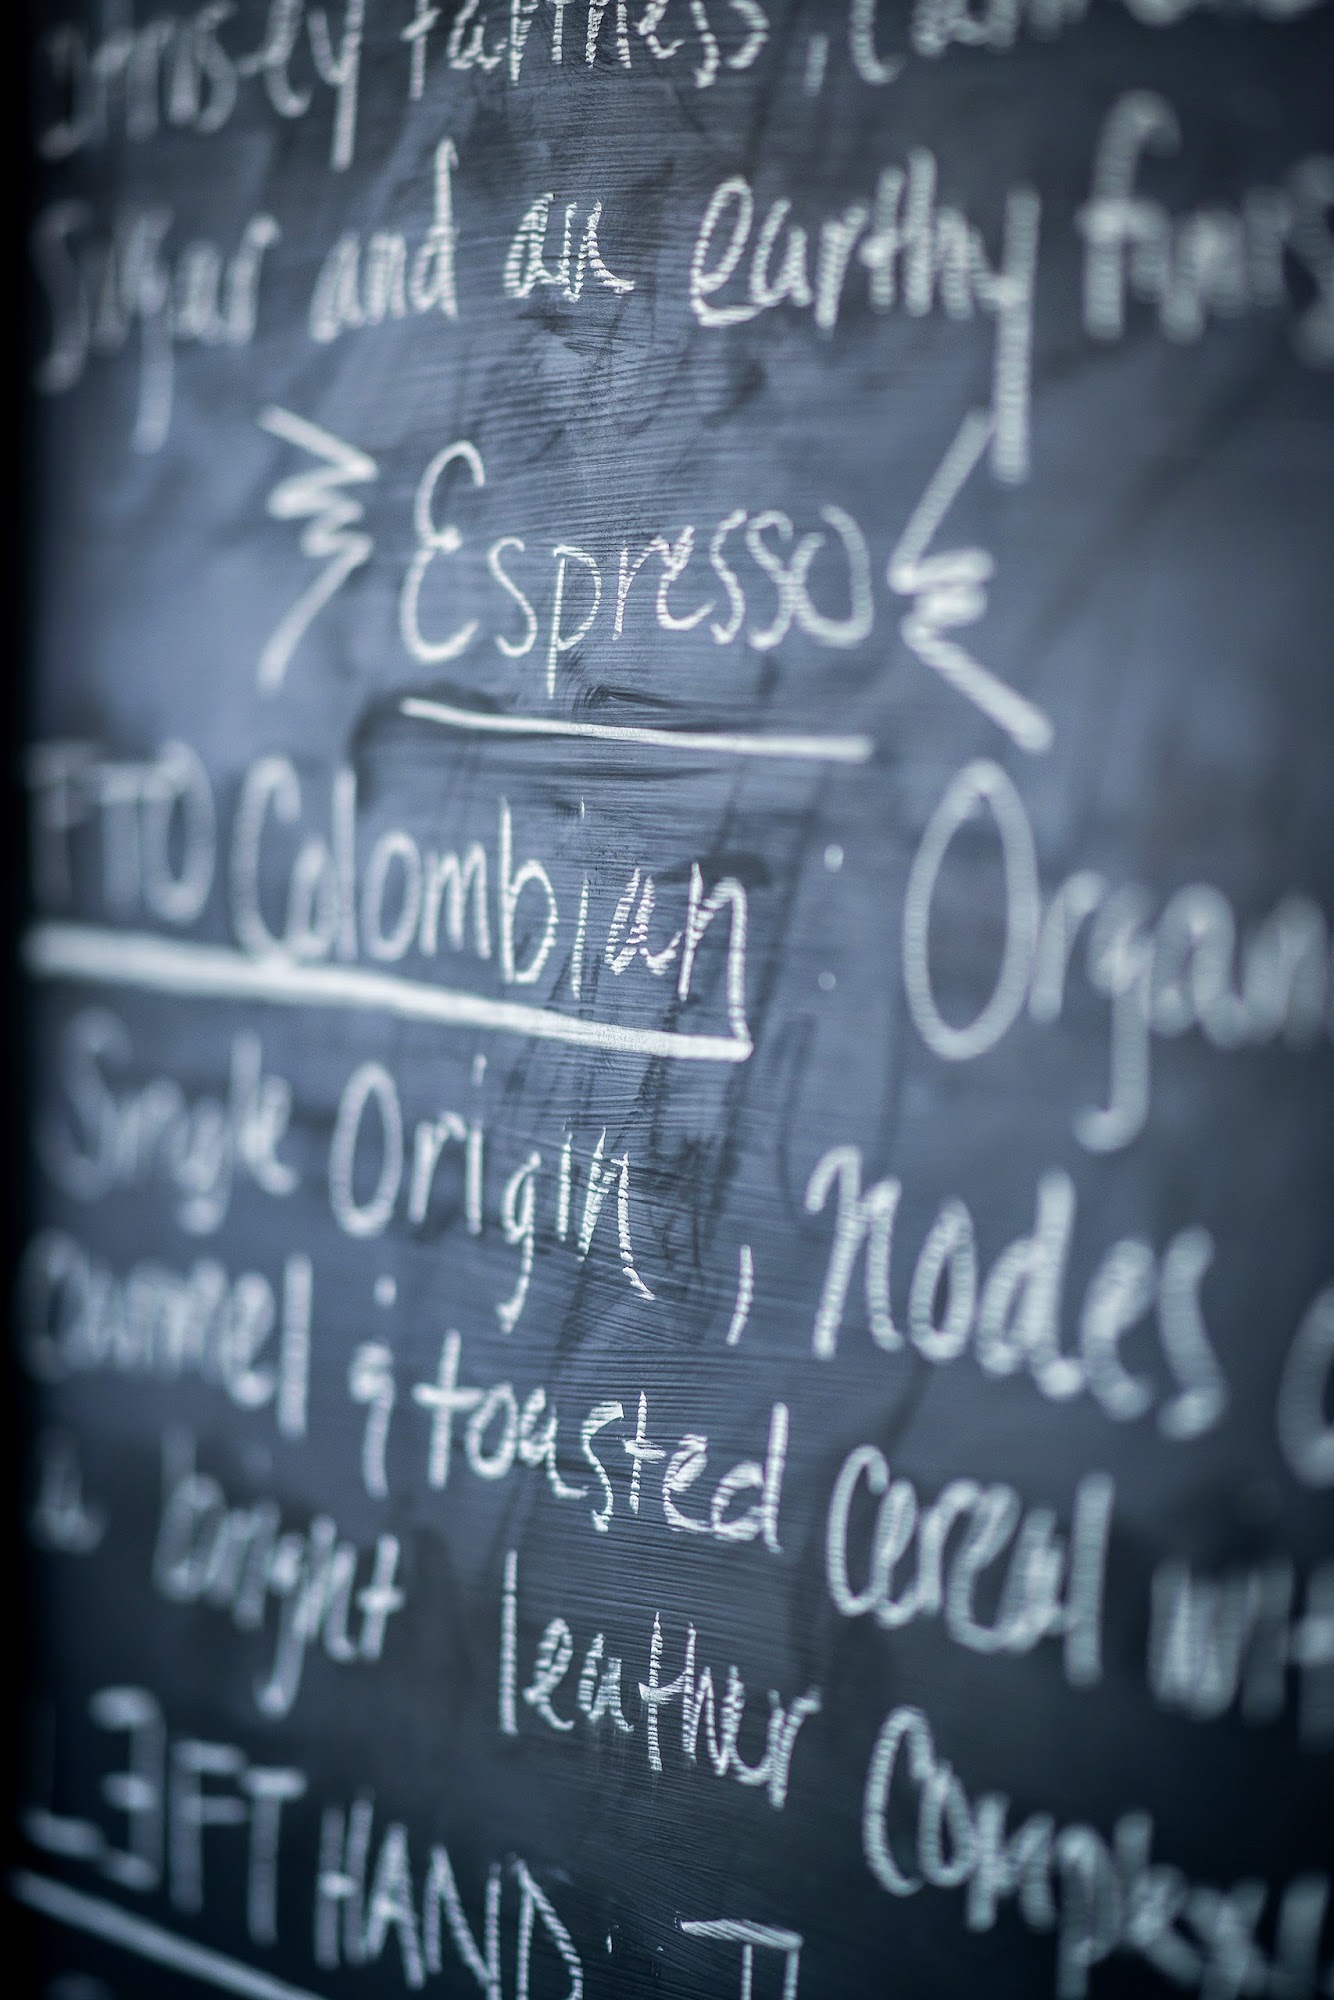 tartness,
Sugar and an earthy
Espresso
FTO Colombian : Organ
Single Origin, Nodes
Caramel & toasted Cereal wit
a bright leather Complexi
LEFT HAND: